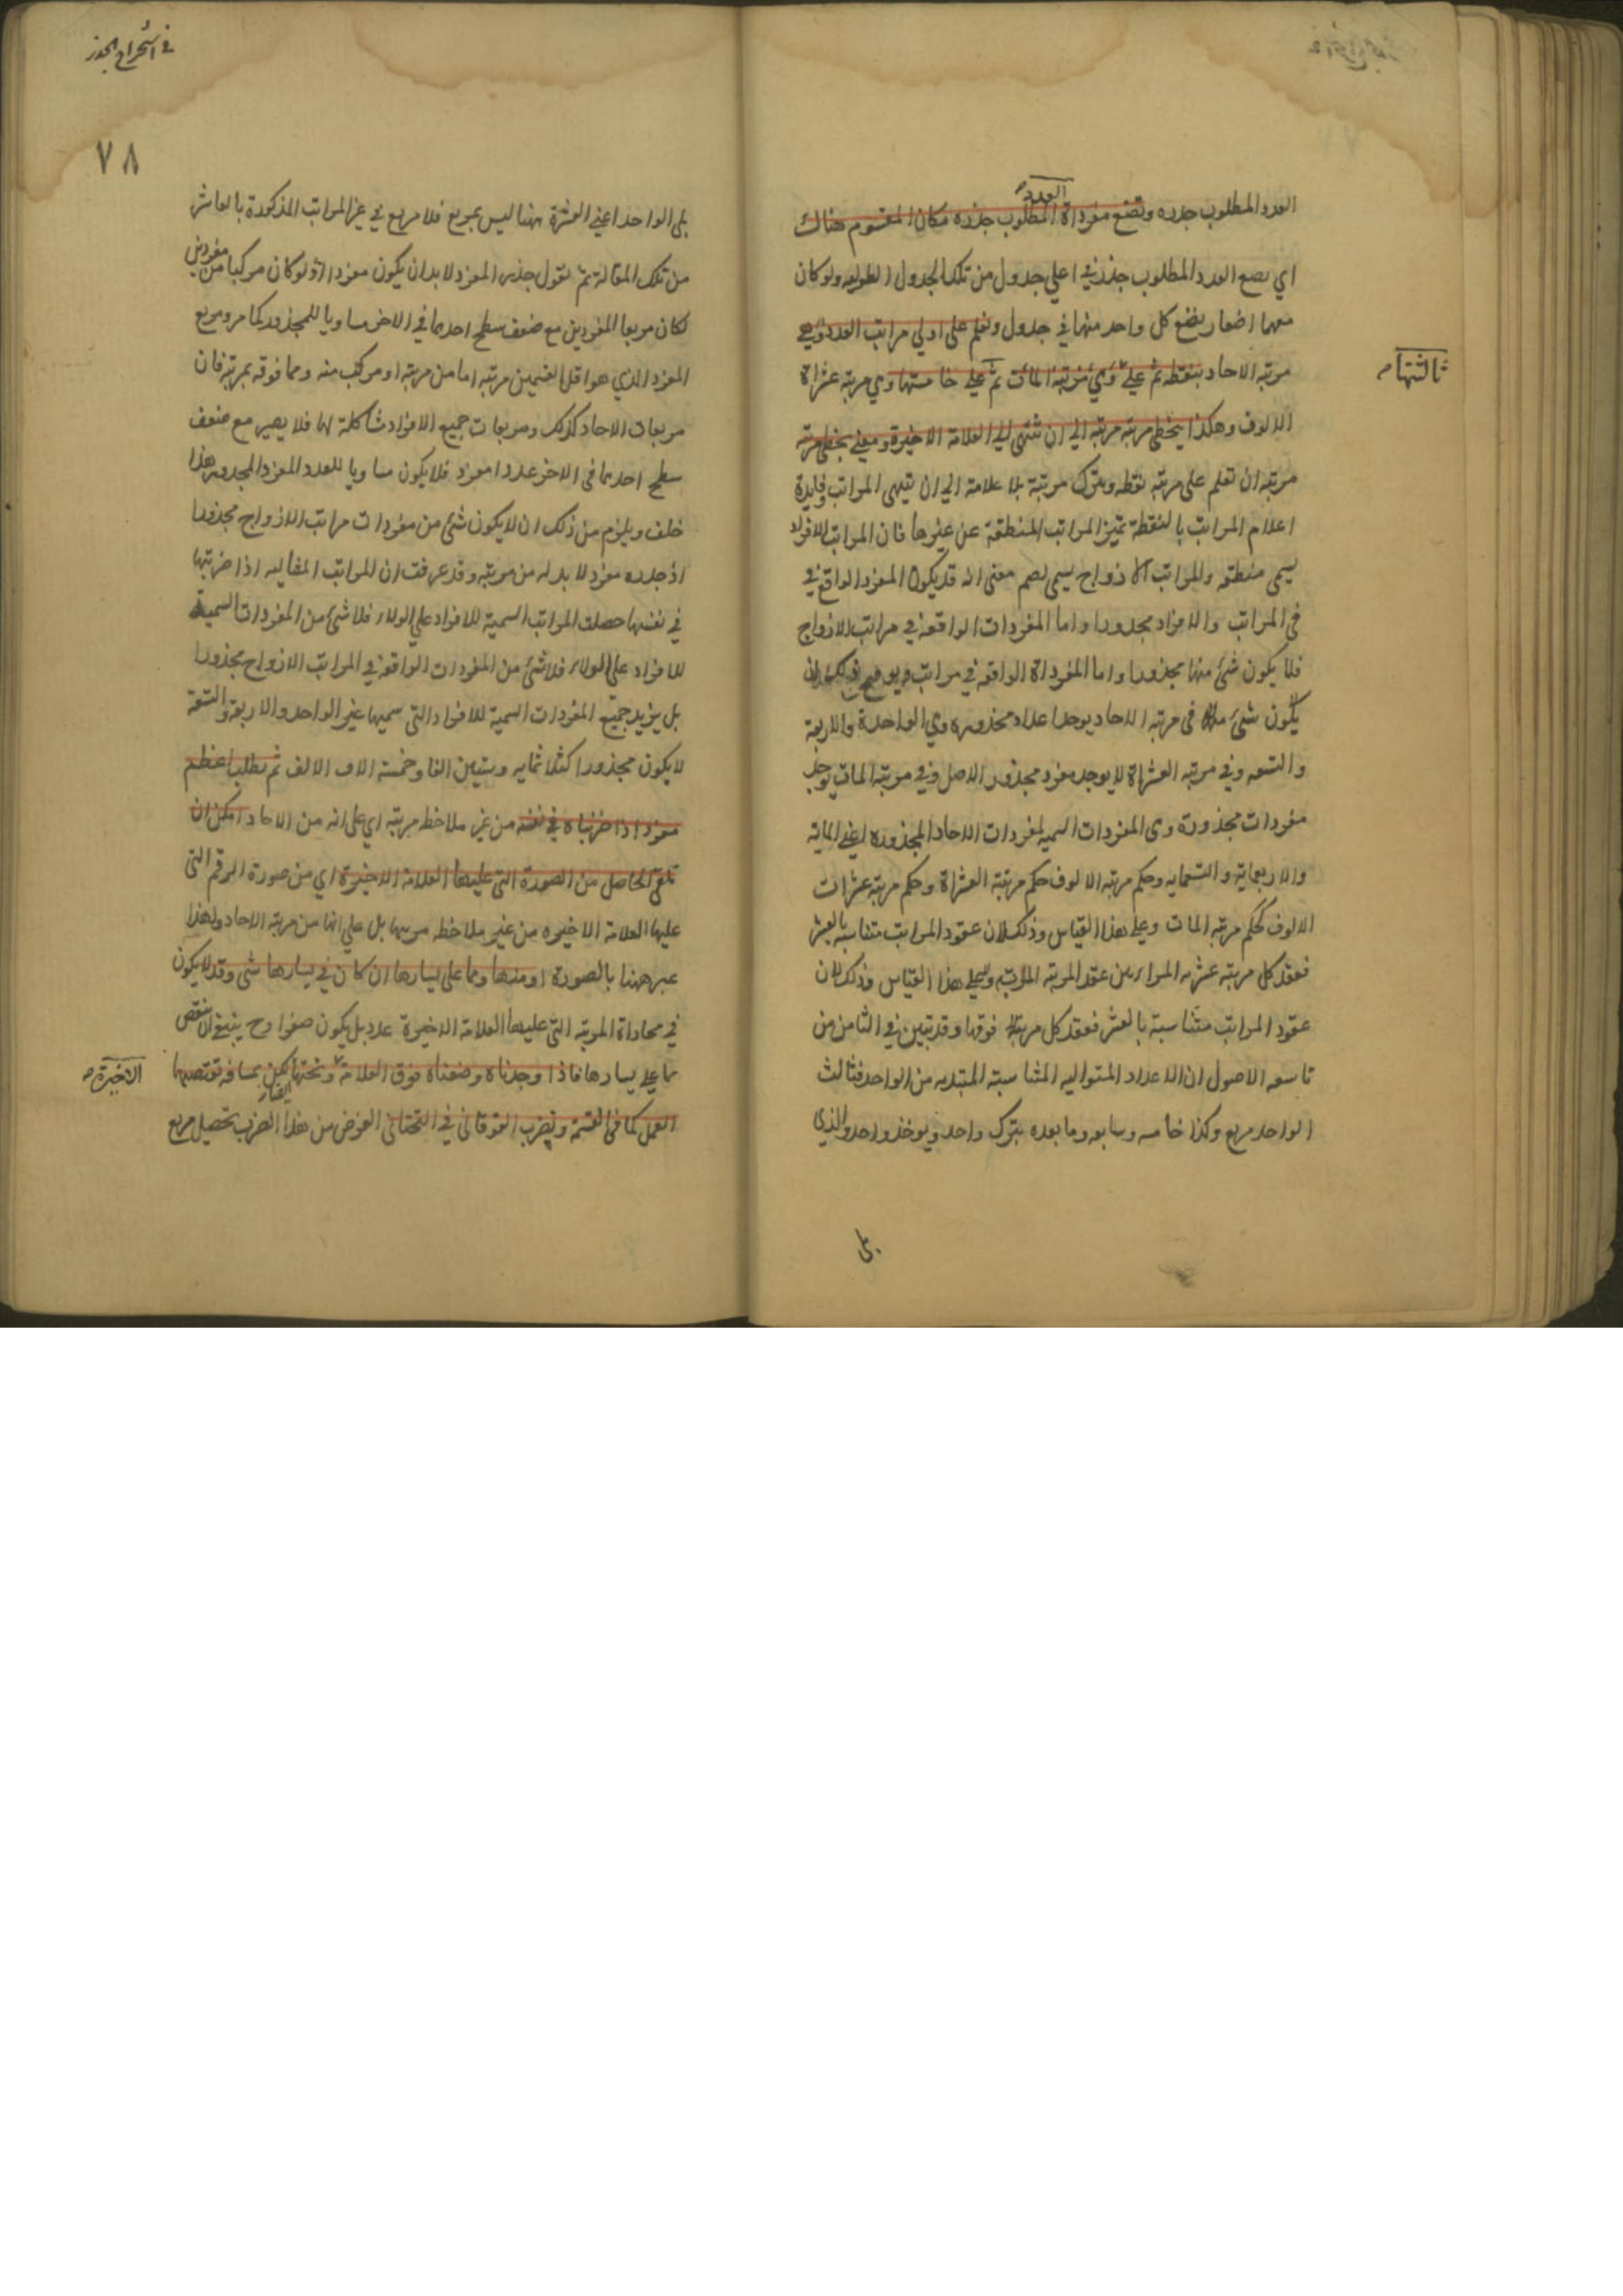 العدد
العدد المطلوب جذره وتضع مفرداة المطلوب جذره مكان المقسوم هناك
اي يضع العدد المطلوب جذره في اعلي جدول من تلك الجدول الطوليه ولو كان
معها اصفار يضع كل واحد منها في جدول وتعلم على اولي مراتب العدد وهي
ثالثتها
مرتبه الاحاد بنقطه ثم علي وهي مرتبة المأت ثم علي خامستها وهي مرتبه عشراة
الالوف وهكذا يتخطى مرتبه مرتبه الي ان تنتهى الي العلامة الاخيرة ومعني يتخطى مرتبه
مرتبه ان تعلم على مرتبه نقطه ويترك مرتبة بلا علامة الي ان ينتهى المراتب وفايدة
اعلام المراتب بالنقطة تميز المراتب المنطقة عن غيرها فان المراتب الافراد
يسمى منطقه والمراتب الازواج يسمى اصم معنى انه قد يكون المفرد الواقع في
فى المراتب والافراد مجذورا واما المفردات الواقعة في مراتب الازواج
فلا يكون شئ منها مجذورا واما المفرداة الواقعه في مراتب
يكون شئ فى مرتبه الاحاد يوجد اعداد مجذوره وهي الواحدة والاربعة
والتسعه وفي مرتبه العشراة لا يوجد مفرد مجذور الاصل وفي مرتبة المات يوجد
مفردات مجذورة وهى المفردات السميه لمفردات الاحاد المجذوره اعني المائة
والاربعماية والتسعمايه وحكم مرتبه الالوف حكم مرتبة العشراة وحكم مرتبه عشرات
الالوف كحكم مرتبه المات وعلى هذا القياس وذلك لان عقود المراتب متناسبه بالعشر
فعقد كل مرتبه عشر من عقد المرتبه وعلى هذا القياس وذلك لان
عقود المراتب متناسبة بالعشر فعقد كل مرتبة فوقها وقد تبين في الثامن من
تاسعه الاصول ان الاعداد المتواليه المتناسبة المبتديه من الواحد فثالث
الواحد مربع وكذا خامسه وسابعه وما بعده بترك واحد ويوخذ واحد والذي
يلى
في استخراج الجذر
٧٨
يلى الواحد اعني العشرة ههنا ليس بمربع فلا مربع في غير المراتب المذكورة بالعاشر
من تلك المقالة ثم نقول جذر المفرد لا بد ان يكون مفردا اذ لو كان مركبا من مفردين
لكان مربعا المفردين مع ضعف سطح احدهما في الاخر مساويا للمجذور كما مر ومربع
المفرد الذي هو اقل القسمين مرتبه اما من مرتبه او مركب منه ومما فوقه بمرتبه فان
مربعات الاحاد كذلك ومربعات جميع الافراد مشاكلة لها فلا يصير مع ضعف
سطح احدهما فى الاخر عددا مفرد فلا يكون مساويا للعدد المفرد المجذور هذا
خلف ويلزم من ذلك ان لا يكون شئ من مفردات مراتب الازواج مجذورا
اذ جذره مفرد لا بد له من مرتبه وقد عرفت ان المراتب المتاليه اذا ضربتها
في نفسها حصلت المراتب السمية للافراد علي الولاء فلا شئ من المفردات السمية
للافراد علي الولاء فلا شئ من المفردات الواقعة في المراتب الازواج مجذورا
بل يزيد جميع المفردات السمية للافراد التى سميها غير الواحد والاربعة والتسعة
لا يكون مجذورا كثلثمايه وستين الفا وخمسة الاف الالف ثم يطلب اعظم
مفرد اذا ضربناه في نفسه من غير ملاحظه مرتبه اي على انه من الاحاد امكن ان
نلقي الحاصل من الصورة التى عليها العلامة الاخيرة اي من صورة الرقم التى
عليها العلامة الاخيره من غير ملاحظه مرتبها بل على انها من مرتبه الاحاد ولهذا
عبر ههنا بالصورة او منها ومما على يسارها ان كان في يسارها شى وقد لا يكون
في محاداة المرتبه التى عليها العلامة الاخيرة عدد بل يكون صفرا وح ينبغي ان ينقص
الاخيرة
مما على يسارها فاذا وجدناه وضعناه فوق العلامة وتحتها ايضا لكن بمسافه تقتضيها
العمل كما فى القسمة ونضرب الفوقانى في التحتانى الغرض من هذا الضرب تحصيل مربع